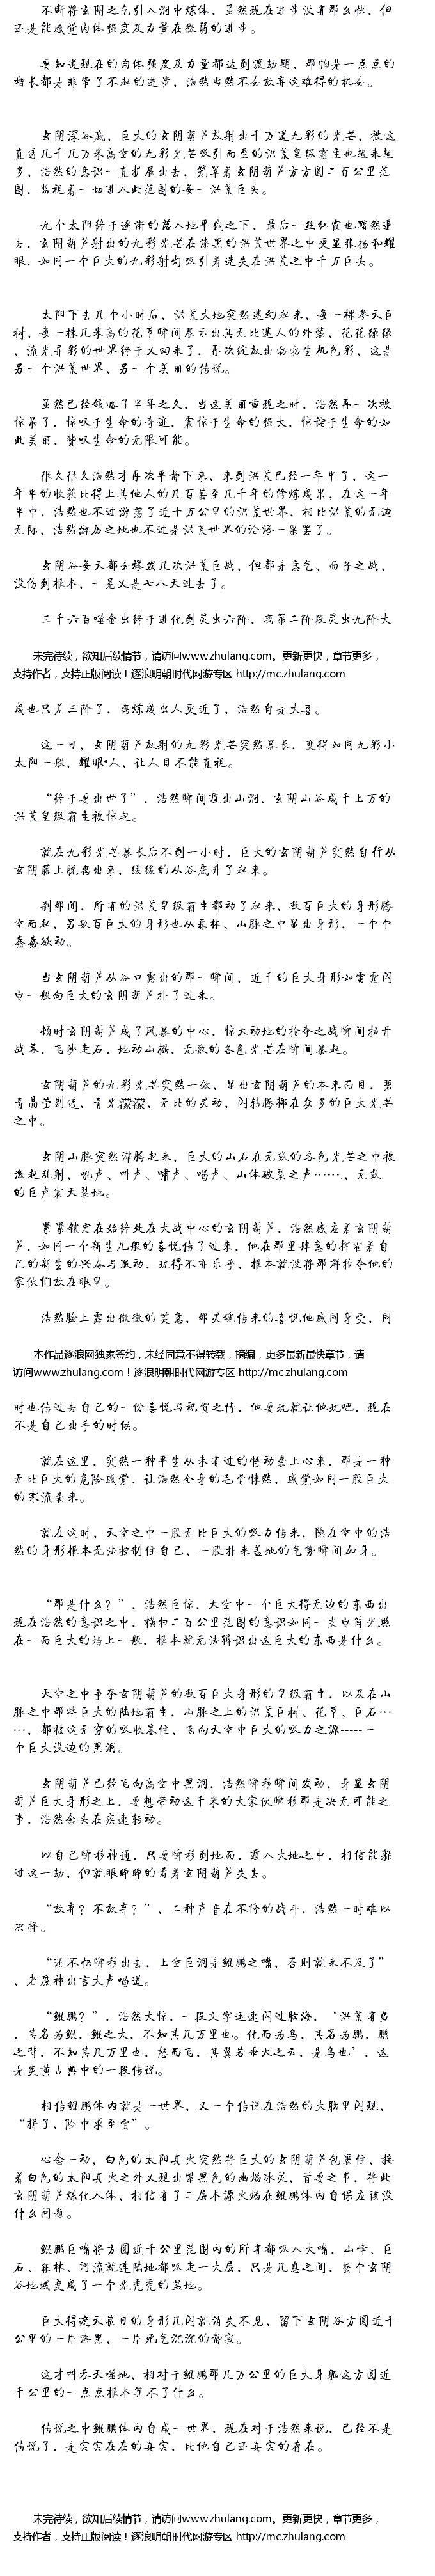 不断将玄阴之气引入洞中炼体，虽然现在进步没有那么快，但
还是能感觉肉体强度及力量在微弱的进步。
要知道现在的肉体强度及力量都达到渡劫期，那怕是一点点的
增长都是非常了不起的进步，浩然当然不会放弃这难得的机会。
玄阴深谷底，巨大的玄阴葫芦放射出千万道九彩的光芒，被这
直透几千几万米高空的九彩光芒吸引而至的洪荒皇级霸主也越来越
多，浩然的意识一直扩展出去，笼罩着玄阴葫芦方方圆二百公里范
围，监视着一切进入此范围的每一洪荒巨头。
九个太阳终于逐渐的落入地平线之下，最后一丝红霞也黯然退
去，玄阴葫芦射出的九彩光芒在漆黑的洪荒世界之中更显张扬和耀
眼，如同一个巨大的九彩射灯吸引着迷失在洪荒之中千万巨头。
太阳下去几个小时后，洪荒大地突然迷幻起来，每一棵参天巨
树，每一株几米高的花草瞬间展示出其无比迷人的外装，花花绿绿
，流光异彩的世界终于又回来了，再次绽放出勃勃生机色彩，这是
另一个洪荒世界，另一个美丽的传说。
虽然已经领略了半年之久，当这美丽重现之时，浩然再一次被
惊呆了，惊叹于生命的奇迹，震惊于生命的强大，惊诧于生命的如
此美丽，赞叹生命的无限可能。
很久很久浩然才再次平静下来，来到洪荒已经一年半了，这一
年半的收获比得上其他人的几百甚至几千年的修炼成果，在这一年
半中，浩然也不过游荡了近十万公里的洪荒世界，相比洪荒的无边
无际，浩然游历之地也不过是洪荒世界的沧海一粟罢了。
玄阴谷每天都会爆发几次洪荒巨战，但都是意气、面子之战，
没伤到根本，一晃又是七八天过去了。
三千六百噬金虫终于进化到灵虫六阶，离第二阶段灵虫九阶大
未完待续，欲知后续情节，请访问www.zhulang.com。更新更快，章节更多，
支持作者，支持正版阅读！逐浪明朝时代网游专区 http://mc.zhulang.com
成也只差三阶了，离炼成虫人更近了，浩然自是大喜。
这一日，玄阴葫芦放射的九彩光芒突然暴长，变得如同九彩小
太阳一般，耀眼*人，让人目不能直视。
“终于要出世了”，浩然瞬间遁出山洞，玄阴山谷成千上万的
洪荒皇级霸主被惊起。
就在九彩光芒暴长后不到一小时，巨大的玄阴葫芦突然自行从
玄阴藤上脱离出来，缓缓的从谷底升了起来。
刹那间，所有的洪荒皇级霸主都动了起来，数百巨大的身形腾
空而起，另数百巨大的身形也从森林、山脉之中显出身形，一个个
蠢蠢欲动。
当玄阴葫芦从谷口露出的那一瞬间，近千的巨大身形如雷霆闪
电一般向巨大的玄阴葫芦扑了过来。
顿时玄阴葫芦成了风暴的中心，惊天动地的抢夺之战瞬间拉开
战幕，飞沙走石，地动山摇，无数的各色光芒在瞬间暴起。
玄阴葫芦的九彩光芒突然一敛，显出玄阴葫芦的本来面目，碧
青晶莹剔透，青光濛濛，无比的灵动，闪转腾挪在众多的巨大光芒
之中。
玄阴山脉突然沸腾起来，巨大的山石在无数的各色光芒之中被
激起乱射，吼声、叫声、啸声、喝声、山体破裂之声……，无数
的巨声震天裂地。
紧紧锁定在始终处在大战中心的玄阴葫芦，浩然感应着玄阴葫
芦，如同一个新生儿般的喜悦传了过来，他在那里肆意的挥霍着自
己的新生的兴奋与激动，玩得不亦乐乎，根本就没将那群抢夺他的
家伙们放在眼里。
浩然脸上露出微微的笑意，那灵魂传来的喜悦他感同身受，同
本作品逐浪网独家签约，未经同意不得转载，摘编，更多最新最快章节，请
访问www.zhulang.com！逐浪明朝时代网游专区 http://mc.zhulang.com
时也传过去自己的一份喜悦与祝贺之情，他要玩就让他玩吧，现在
不是自己出手的时候。
就在这里，突然一种平生从未有过的悸动袭上心来，那是一种
无比巨大的危险感觉，让浩然全身的毛骨悚然，感觉如同一股巨大
的寒流袭来。
就在这时，天空之中一股无比巨大的吸力传来，隐在空中的浩
然的身形根本无法控制住自己，一股扑来盖地的气势瞬间加身。
“那是什么？”，浩然巨惊，天空中一个巨大得无边的东西出
现在浩然的意识之中，横扫二百公里范围的意识如同一支电筒光照
在一面巨大的墙上一般，根本就无法辩识出这巨大的东西是什么。
天空之中争夺玄阴葫芦的数百巨大身形的皇级霸主，以及在山
脉之中那些巨大的陆地霸主，山脉之上的洪荒巨树、花草、巨石…
…，都被这无穷的吸收摄住，飞向天空中巨大的吸力之源-----一
个巨大没边的黑洞。
玄阴葫芦已经飞向高空中黑洞，浩然瞬移瞬间发动，身显玄阴
葫芦巨大身形之上，要想带动这千米的大家伙瞬移那是决无可能之
事，浩然念头在疾速转动。
以自己瞬移神通，只要瞬移到地面，遁入大地之中，相信能躲
过这一劫，但就眼睁睁的看着玄阴葫芦失去。
“放弃？不放弃？”，二种声音在不停的战斗，浩然一时难以
决择。
“还不快瞬移出去，上空巨洞是鲲鹏之嘴，否则就来不及了”
，老魔神出言大声喝道。
“鲲鹏？”，浩然大惊，一段文字迅速闪过脑海，‘洪荒有鱼
，其名为鲲，鲲之大，不知其几万里也。化而为鸟，其名为鹏，鹏
之背，不知其几万里也，怒而飞，其翼若垂天之云，是鸟也’，这
是炎黄古典中的一段传说。
相传鲲鹏体内就是一世界，又一个传说在浩然的大脑里闪现，
“拼了，险中求至宝”。
心念一动，白色的太阳真火突然将巨大的玄阴葫芦包裹住，接
着白色的太阳真火之外又现出紫黑色的幽焰冰灵，首要之事，将此
玄阴葫芦炼化入体，相信有了二层本源火焰在鲲鹏体内自保应该没
什么问题。
鲲鹏巨嘴将方圆近千公里范围内的所有都吸入大嘴，山峰、巨
石、森林、河流就连陆地都吸走一大层，只是几息之间，整个玄阴
谷地域变成了一个光秃秃的盆地。
巨大得遮天蔽日的身形几闪就消失不见，留下玄阴谷方圆近千
公里的一片漆黑，一片死气沉沉的静寂。
这才叫吞天噬地，相对于鲲鹏那几万公里的巨大身躯这方圆近
千公里的一点点根本算不了什么。
传说之中鲲鹏体内自成一世界，现在对于浩然来说，已经不是
传说了，是实实在在的真实，比他自己还真实的存在。
未完待续，欲知后续情节，请访问www.zhulang.com。更新更快，章节更多，
支持作者，支持正版阅读！逐浪明朝时代网游专区 http://mc.zhulang.com